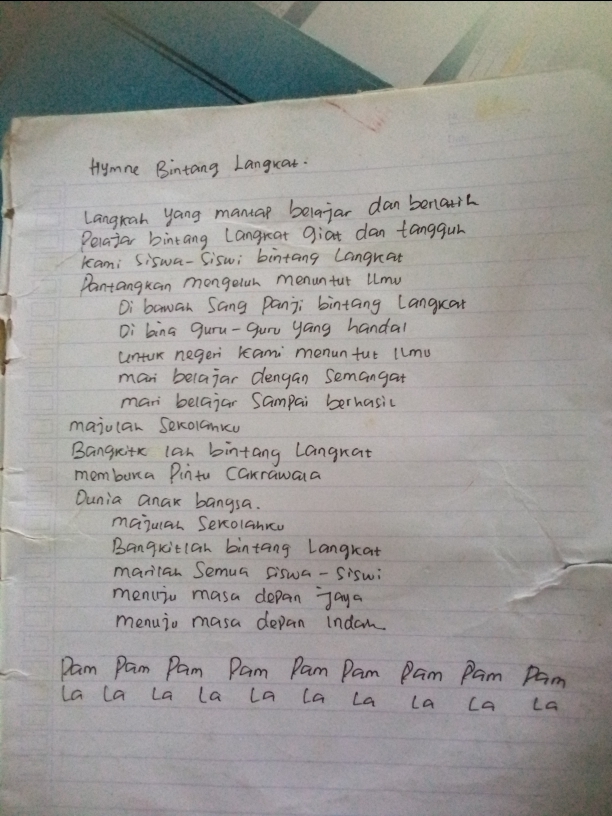 Hymne Bintang Langkat.
Langkah yang mantap belajar dan berlatih
Pelajar bintang Langkat giat dan tangguh
Kami siswa-siswi bintang Langkat
Pantangkan mengeluh menuntut ilmu
Di bawah sang panji bintang Langkat
Di bina guru-guru yang handal
untuk negeri kami menuntut ilmu
mari belajar dengan semangat
mari belajar sampai berhasil
majulah sekolahku
Bangkitk lah bintang Langkat
membuka pintu cakrawala
Dunia anak bangsa.
majulah sekolahku
Bangkitlah bintang Langkat
marilah semua siswa-siswi
menuju masa depan jaya
menuju masa depan indah
Pam Pam Pam Pam Pam Pam Pam Pam Pam
La La La La La La La La La La